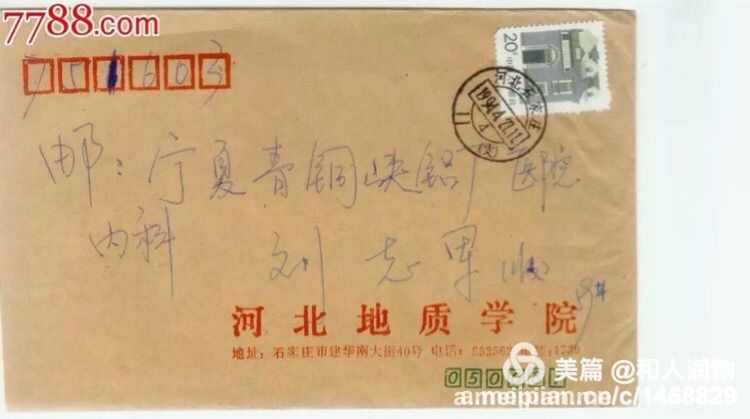 7788.com
751603
20
河北石家庄
1994.4.22.17
11
4
(支)
邮:宁夏青铜峡铝厂医院
内科 刘志军 收
河北地质学院
地址:石家庄市建华南大街40号 电话:
1739
050
美篇 @和人润物
meipian.cn/c/1468829